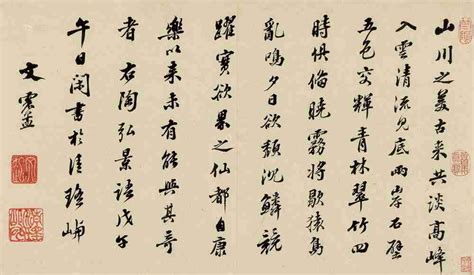 山川之美古来共談高峰
入雲清流見底兩岸石壁
五色交輝青林翠竹四
時俱俻曉霧將歇猿鳥
亂鳴夕日欲頹沉鱗競
躍實欲界之仙都自康
樂以来未有能與其奇
者右陶弘景語戊午
午日閑書於清瑶嶼
文震孟